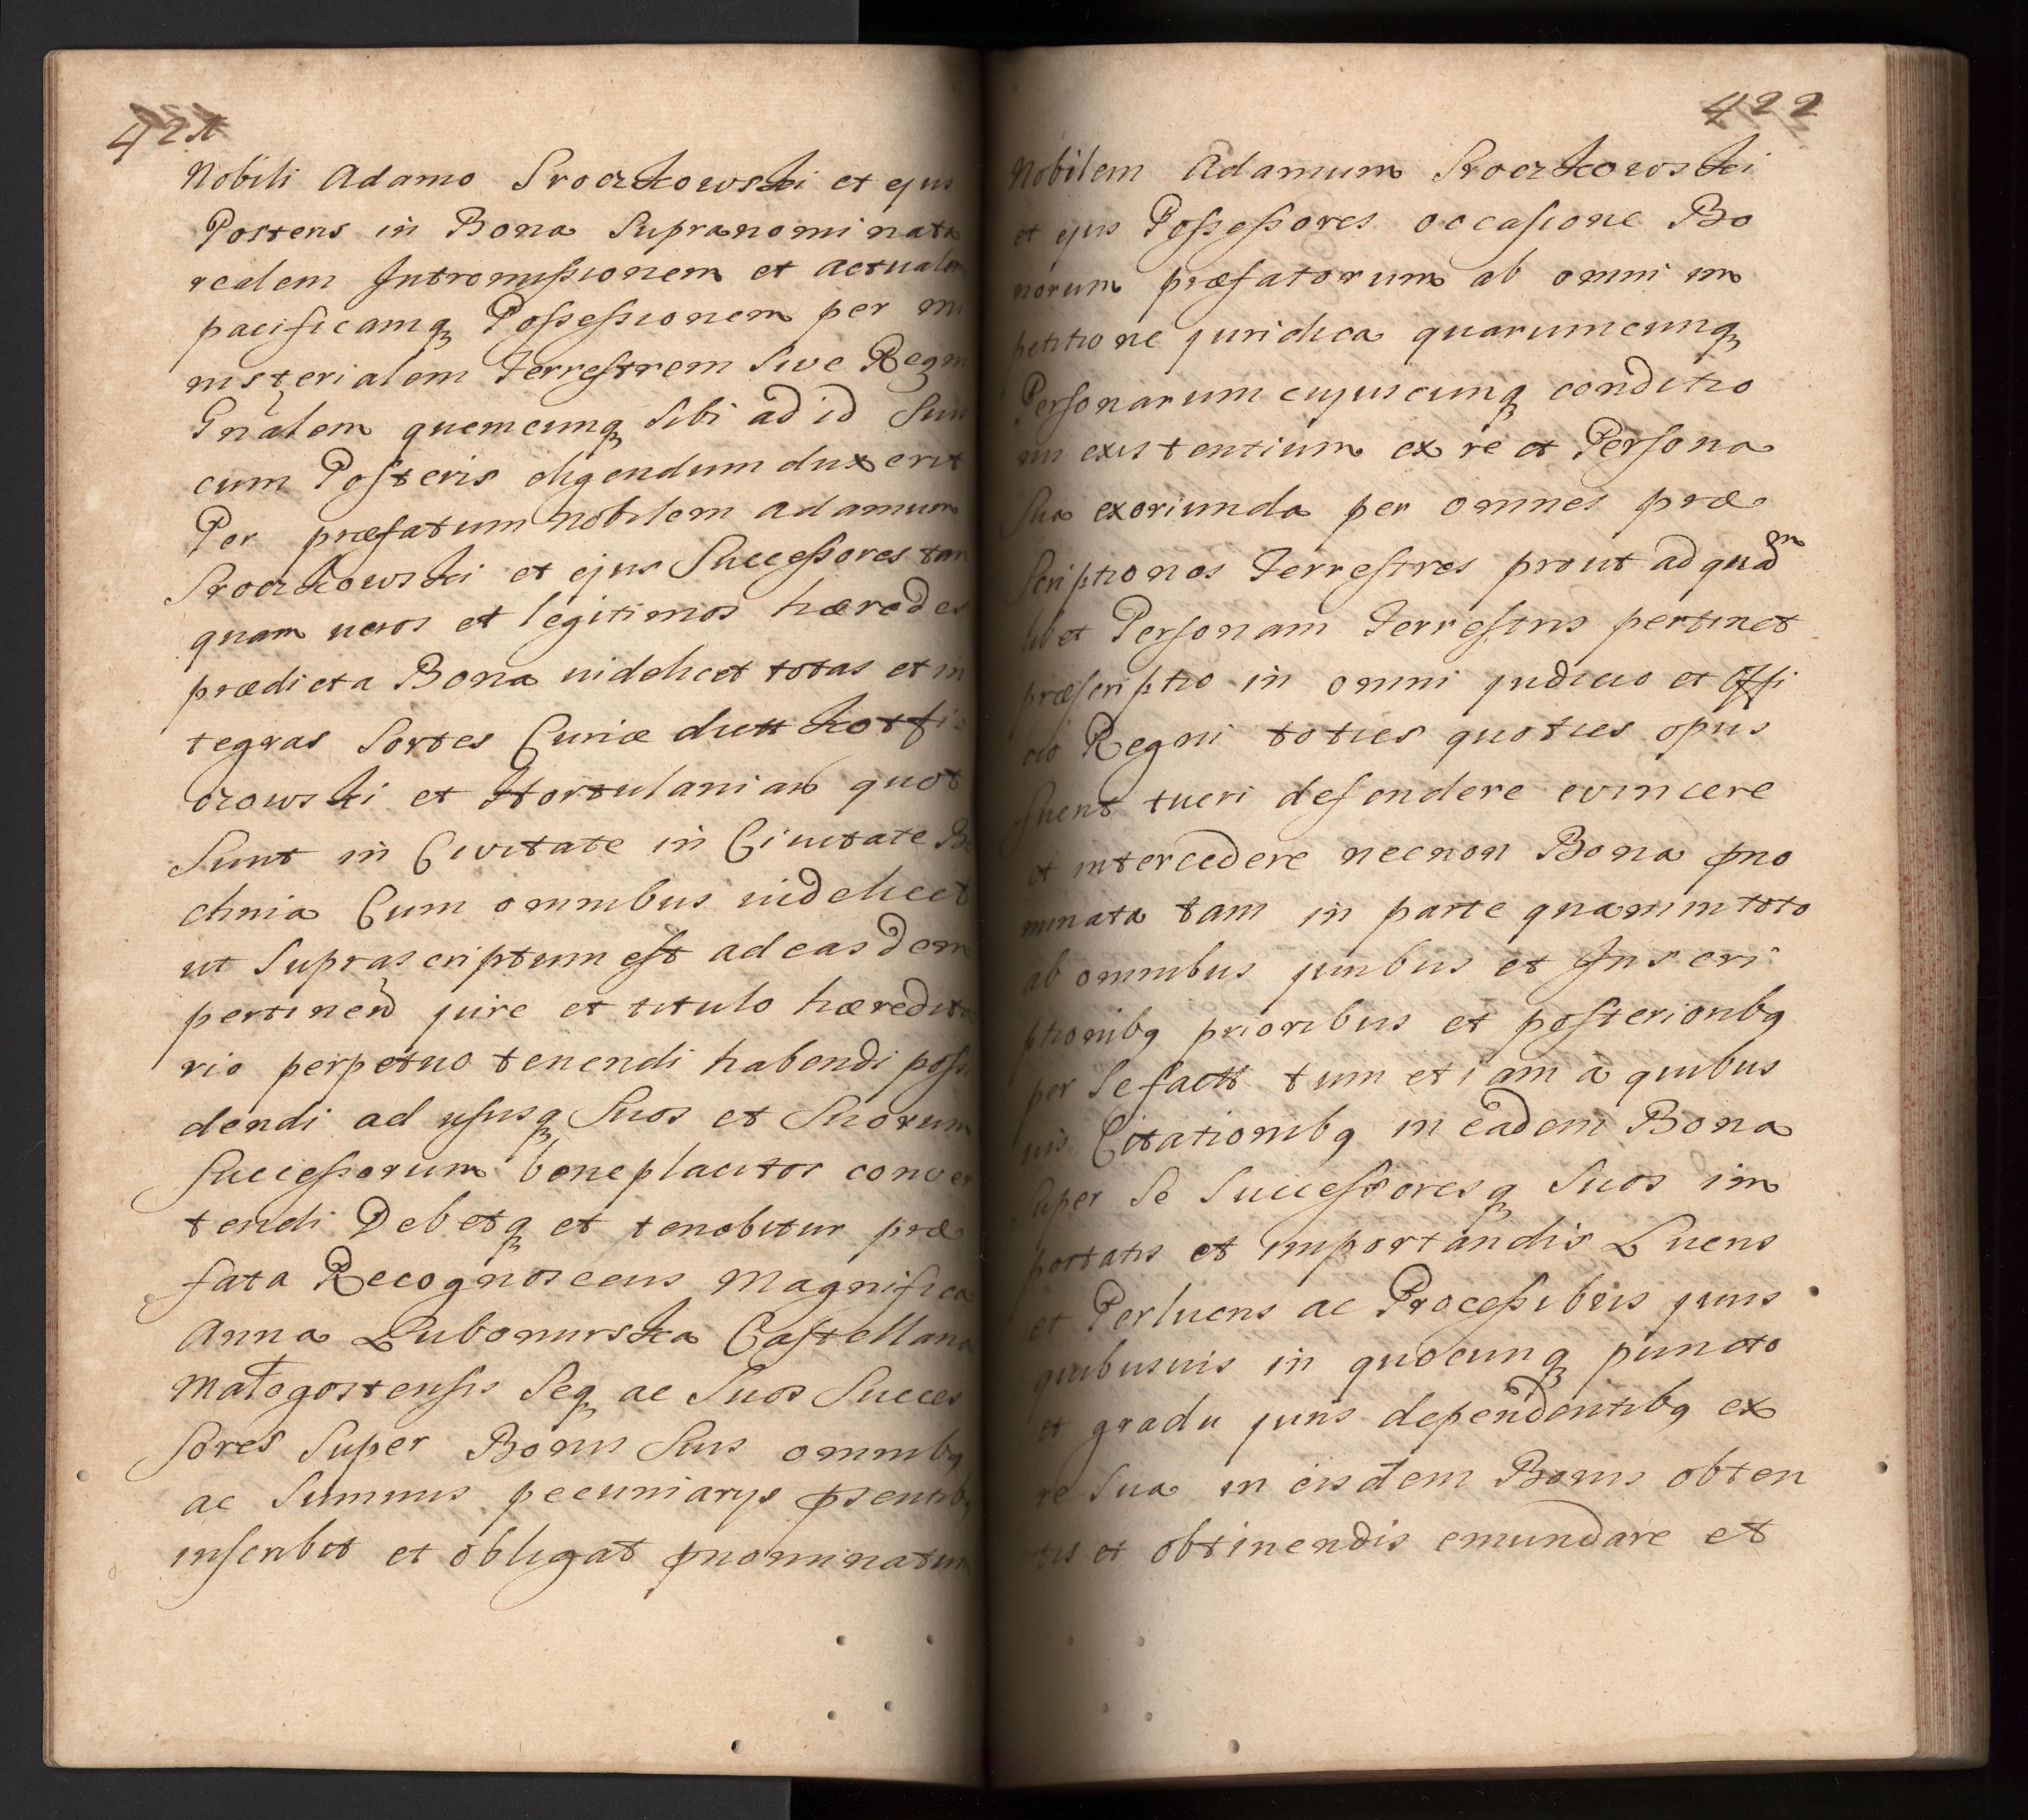 421
Nobili Adamo Sroczkowski et ejus
Posteris in Bona Supranominata
realem Intromissionem et actualem
pacificamq Possessionem per mi
nisterialem Terrestrem Sive Regni
Gnalem quemcunq Sibi ad id Suis
cum Posteris eligendum duxerit
Per præfatum Nobilem Adamum
Sroczkowski et ejus Successores tan
quam veros et legitimos hæredes
prædicta Bona videlicet totas et in
tegras Sortes Curiæ dictt
et Hortulaniam quot
Sunt in Civitate in Civitate Bo
chnia Cum omnibus videlicet
ut Suprascriptum est ad easdem
pertinen jure et titulo hæredita
rio perpetuo tenendi habendi possi
dendi ad ususq Suos et Suorum
Successorum beneplacitos conver
tendi Debetq et tenebitur præ
fata Recognoscens Magnifica
Anna Lubomirska Castellana
Małogostensis Seq ac Suos Succes
Sores Super Bonis Suis omnibq
ac Summis pecuniarys psentibq
inscribit et obligat pnominatum
422
Nobilem Adamum Sroczkowski
et ejus Possessores occasione Bo
norum præfatorum ab omni im
petitione juridica quarumcunq
Personarum cujuscunq conditio
nis existentium ex re et Persona
Sua exoriunda per omnes præ
Scriptiones Terrestres prout ad quam
libet Personam Terrestris pertinet
præscriptio in omni judicio et Offi
cio Regni toties quoties opus
fuerit tueri defendere evincere
et intercedere necnon Bona pno
minata tam in parte quam in toto
ab omnibus juribus et Inscri
ptionibq prioribus et posterioribq
per Se factt tum etiam à quibus
vis Citationibq in eadem Bona
Super Se Successoresq Suos im
portatis et importandis Luens
et Perluens ac Processibus juris
quibusvis in quocunq puncto
et gradu juris dependentibq ex
re Sua in eisdem Bonis obten
tis et obtinendis emundare et